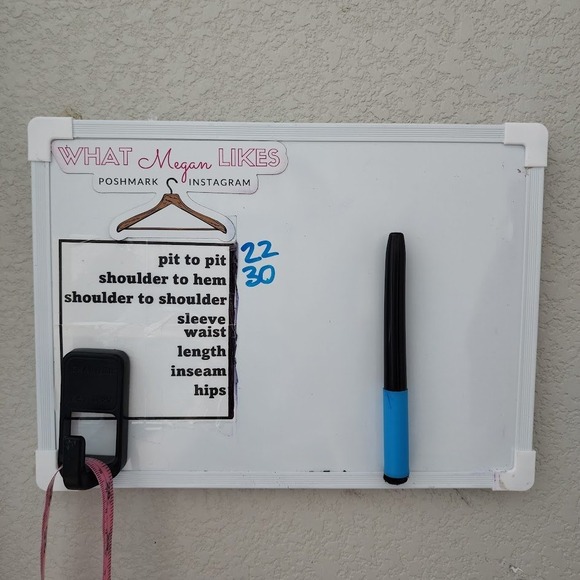 WHAT Megan LIKES
POSHMARK INSTAGRAM
pit to pit 22
shoulder to hem 30
shoulder to shoulder
sleeve
waist
length
inseam
hips